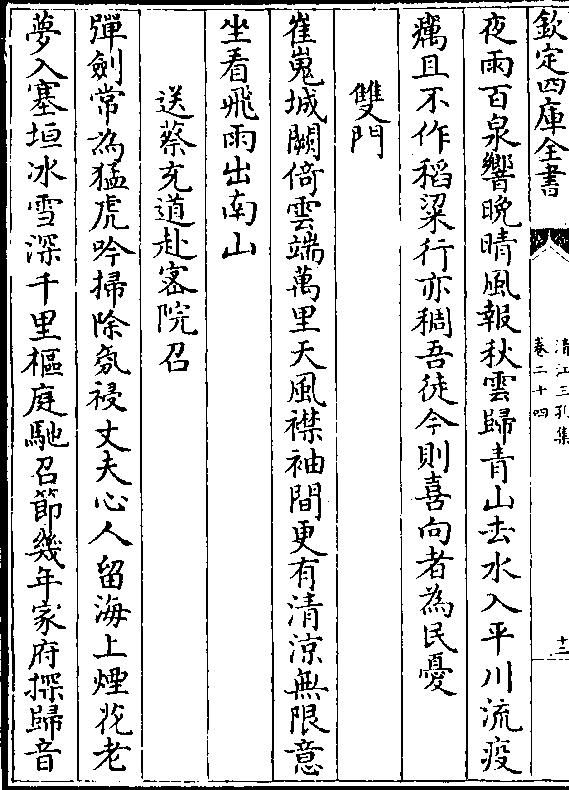 欽定四庫全書
清江三孔集
卷二十四
十二
夜雨百泉響晩晴風報秋雲歸青山去水入平川流疫
癘且不作稻粱行亦稠吾徒今則喜向者為民憂
雙門
崔嵬城闕倚雲端萬里天風襟袖間更有清涼無限意
坐看飛雨出南山
送蔡充道赴密院召
彈劍常為猛虎吟掃除氛祲丈夫心人留海上煙花老
夢入塞垣冰雪深千里樞庭馳召節幾年家府探歸音